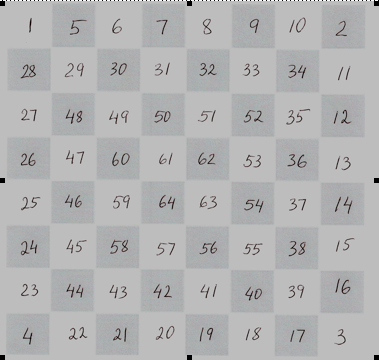 1 5 6 7 8 9 10 2
28 29 30 31 32 33 34 11
27 48 49 50 51 52 35 12
26 47 60 61 62 53 36 13
25 46 59 64 63 54 37 14
24 45 58 57 56 55 38 15
23 44 43 42 41 40 39 16
4 22 21 20 19 18 17 3